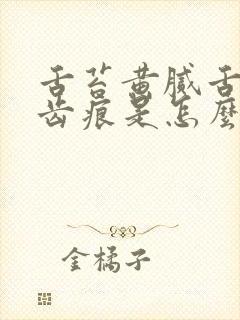 舌苔黄腻舌
齿痕是怎麼
金橘子